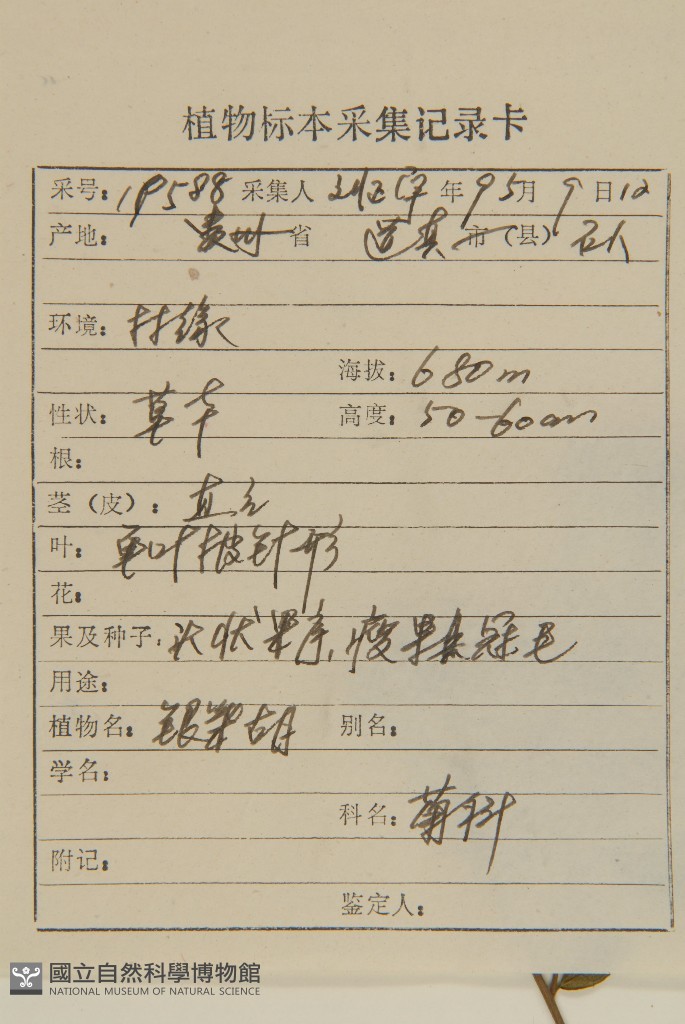 植物标本采集记录卡
采号: 19588 采集人 刘正宇 年 95月 9 日12
产地: 贵州 省 道真 市(县) 石人
环境: 林缘
海拔: 680m
性状: 草本 高度: 50-60cm
根:
茎(皮): 直立
叶: 单叶披针形
花:
果及种子: 头状果序, 瘦果具冠毛
用途:
植物名: 银柴胡 别名:
学名:
科名: 菊科
附记:
鉴定人:
國立自然科學博物館
NATIONAL MUSEUM OF NATURAL SCIENCE